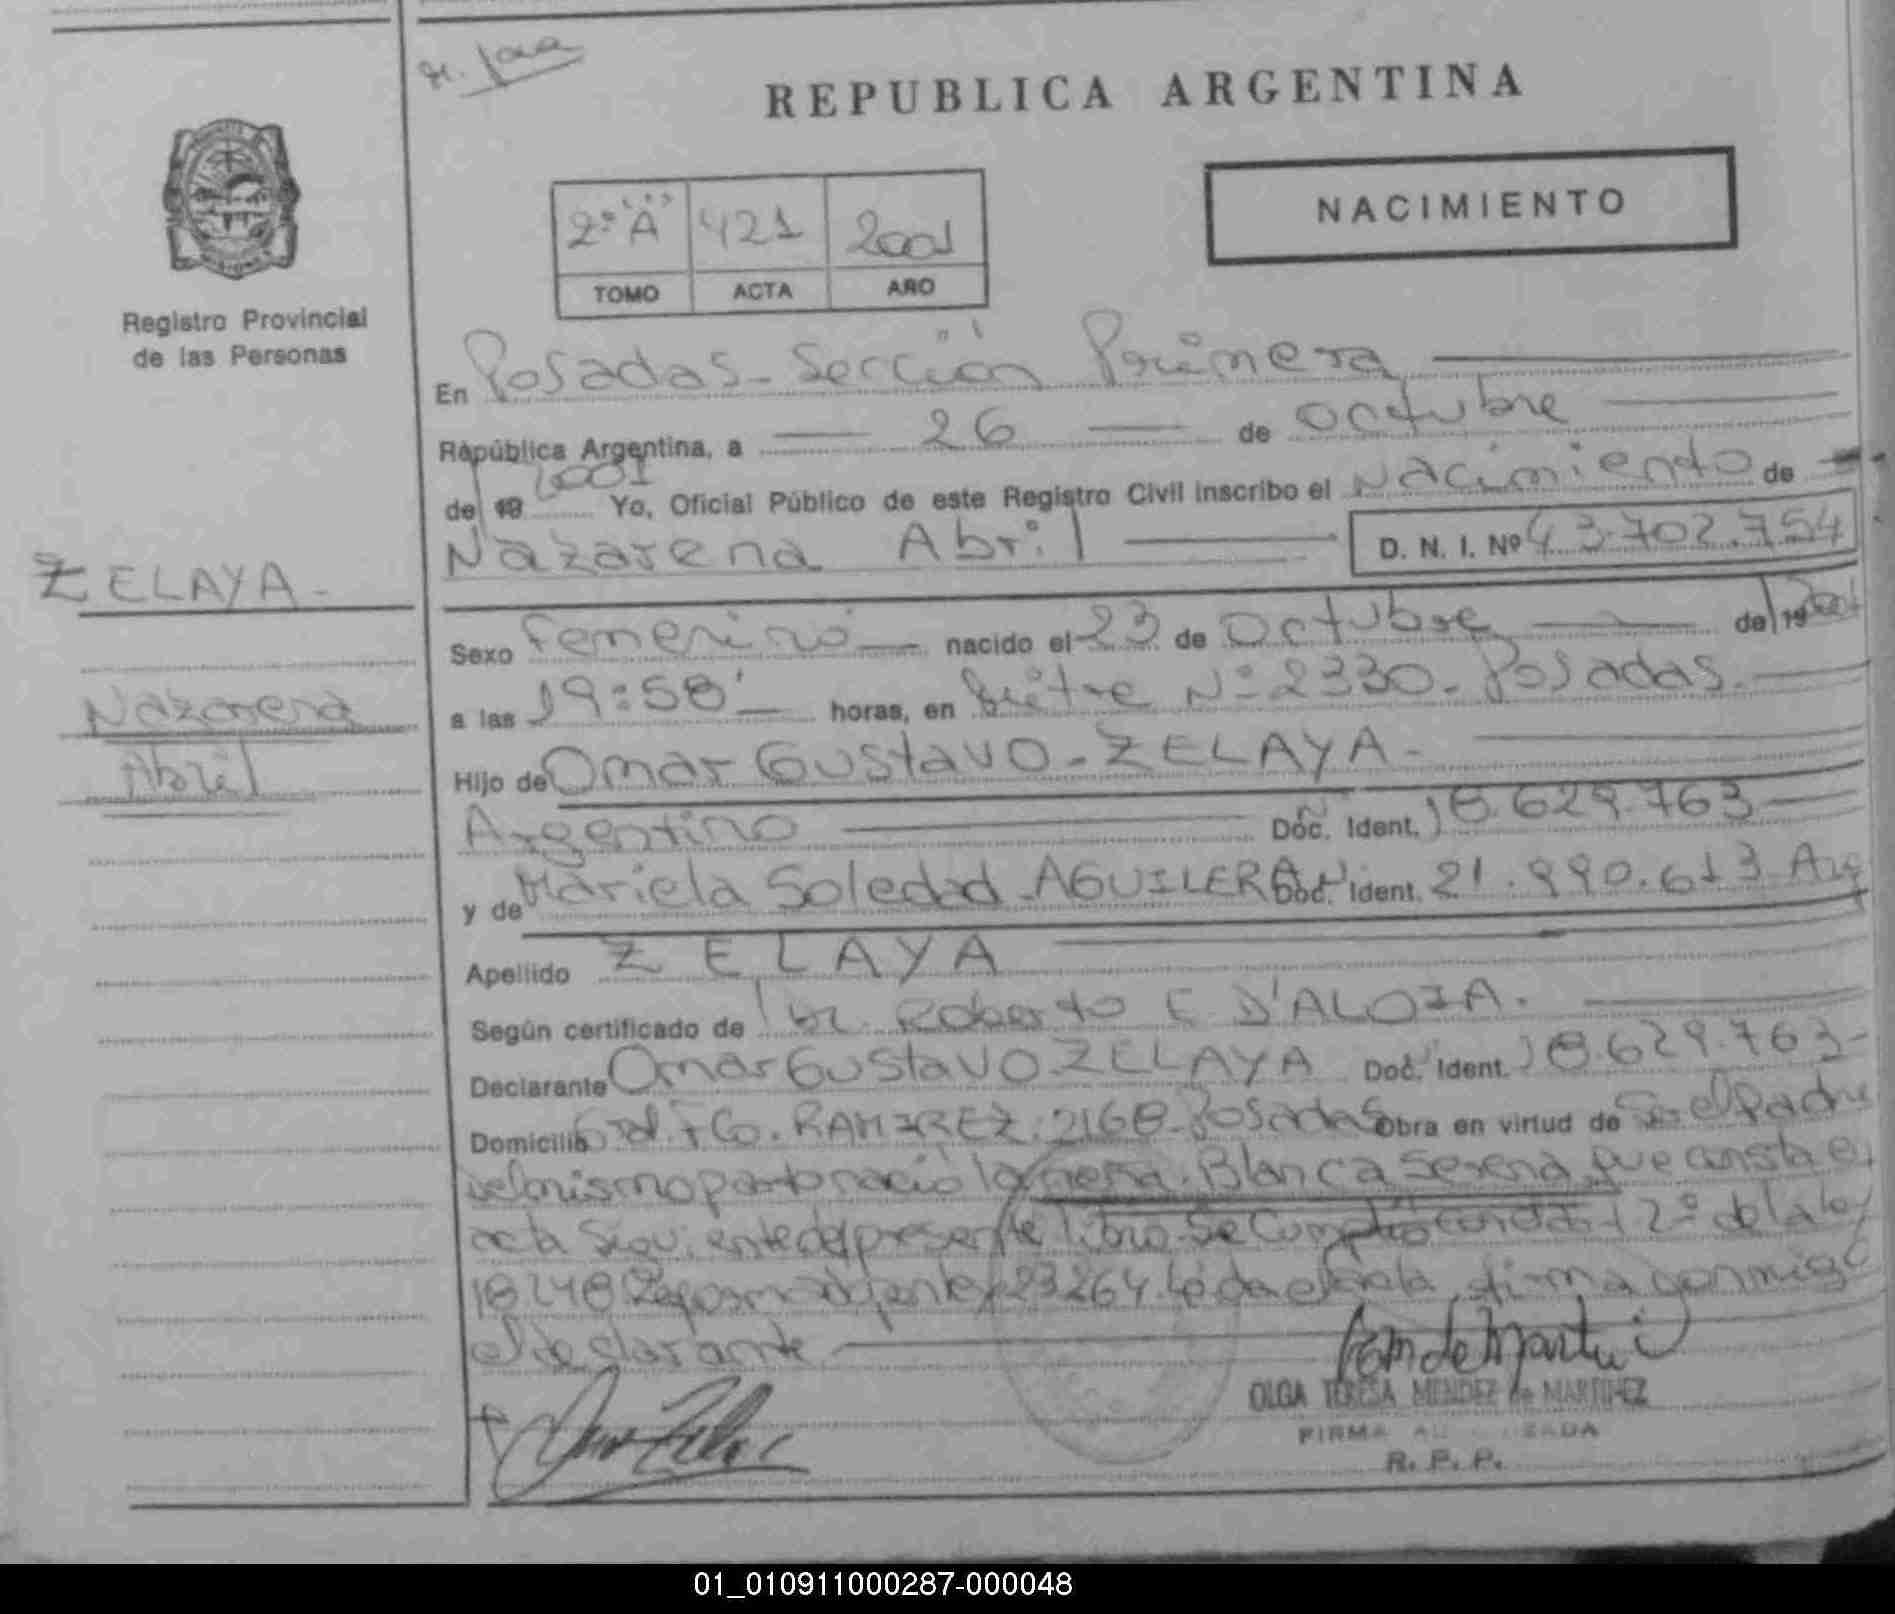 REPUBLICA ARGENTINA
NACIMIENTO
2º "A" 421 2001
TOMO ACTA AÑO
Registro Provincial
de las Personas
En Posadas - Sección Primera
República Argentina, a 26 de octubre
de 19 2001 Yo, Oficial Público de este Registro Civil inscribo el Nacimiento de
Nazarena Abril D. N. I. Nº 43.702.754
ZELAYA -
Nazarena
Abril
Sexo Femenino nacido el 23 de Octubre de 19 2001
a las 19:58' horas, en Bmé Mitre Nº 2330 - Posadas.
Hijo de Omar Gustavo - ZELAYA -
Argentino Doc. Ident. 18.629.763
y de Mariela Soledad - AGUILERA Doc. Ident. 21.990.613 Arg
Apellido ZELAYA
Según certificado de Dr. Roberto E D'ALOIA.
Declarante Omar Gustavo ZELAYA Doc. Ident. 18.629.763-
Domicilio Gral. Fco. RAMIREZ. 2168 - Posadas Obra en virtud de Ser el Padre
del mismo parto nació la nena Blanca Serena, que consta en
acta siguiente del presente libro. Se cumplió con el art 2º de la ley
18248 Reformado por ley 23264. Leída el acta, firma conmigo
el declarante
OLGA TERESA MENDEZ de MARTINEZ
FIRMA AUTORIZADA
R. P. P.
01_010911000287-000048